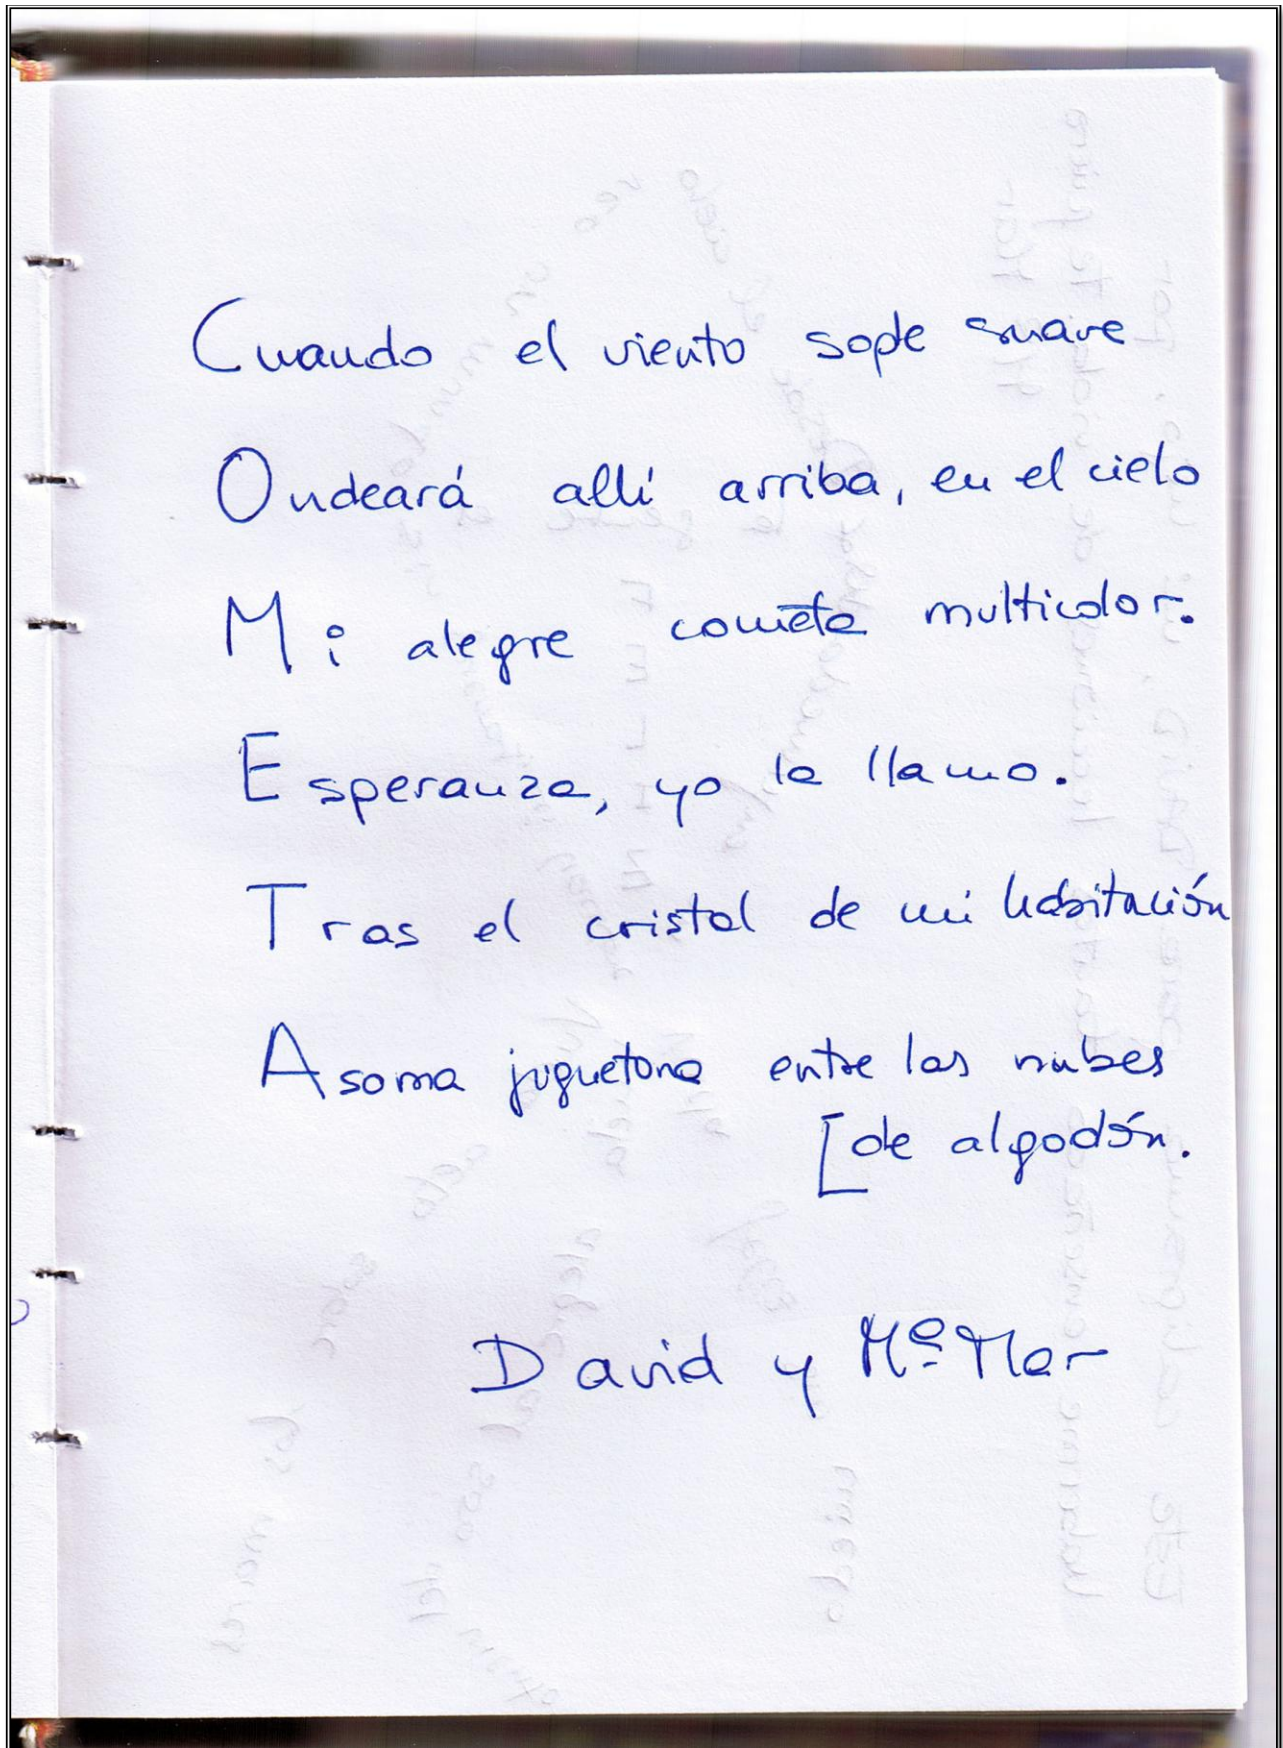 Cuando el viento sople suave
Ondeará allí arriba, en el cielo
Mi alegre cometa multicolor.
Esperanza, yo la llamo.
Tras el cristal de mi habitación
Asoma juguetona entre las nubes
[de algodón.
David y Mª Mar